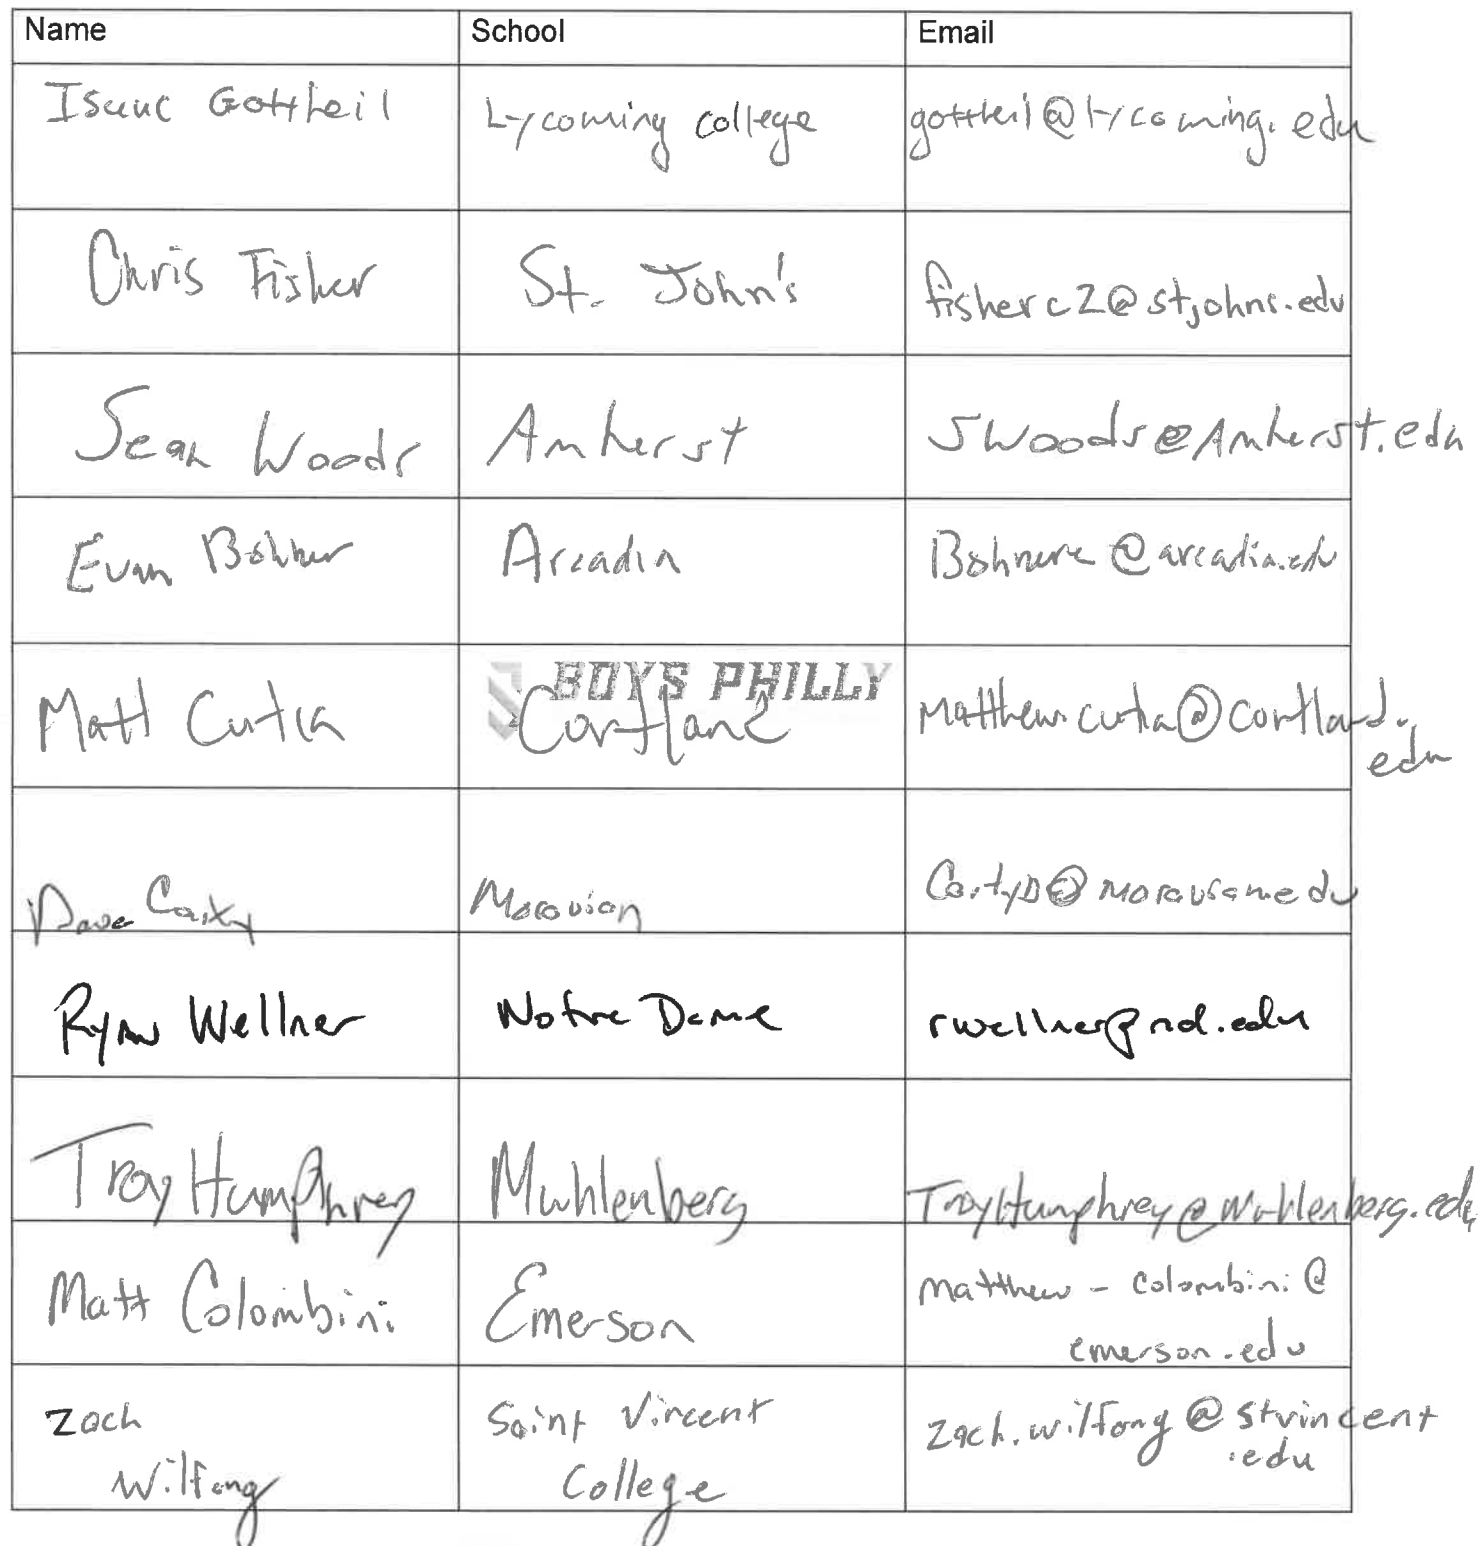 Name School Email
Isaac Gottheil Lycoming college gottheil@lycoming.edu
Chris Fisher St. John's fisherc2@stjohns.edu
Sean Woods Amherst swoods@Amherst.edu
Evan Bohner Arcadia Bohnere@arcadia.edu
BOYS PHILLY
Matt Cutia Cortland Matthew.cutia@cortland.
edu
Dave Carty Moravian CartyD@moravian.edu
Ryan Wellner Notre Dame rwellner@nd.edu
Troy Humphrey Muhlenberg TroyHumphrey@Muhlenberg.edu
Matt Colombini Emerson matthew-colombini@
emerson.edu
Zach Saint Vincent zach.wilfong@stvincent
Wilfong College .edu